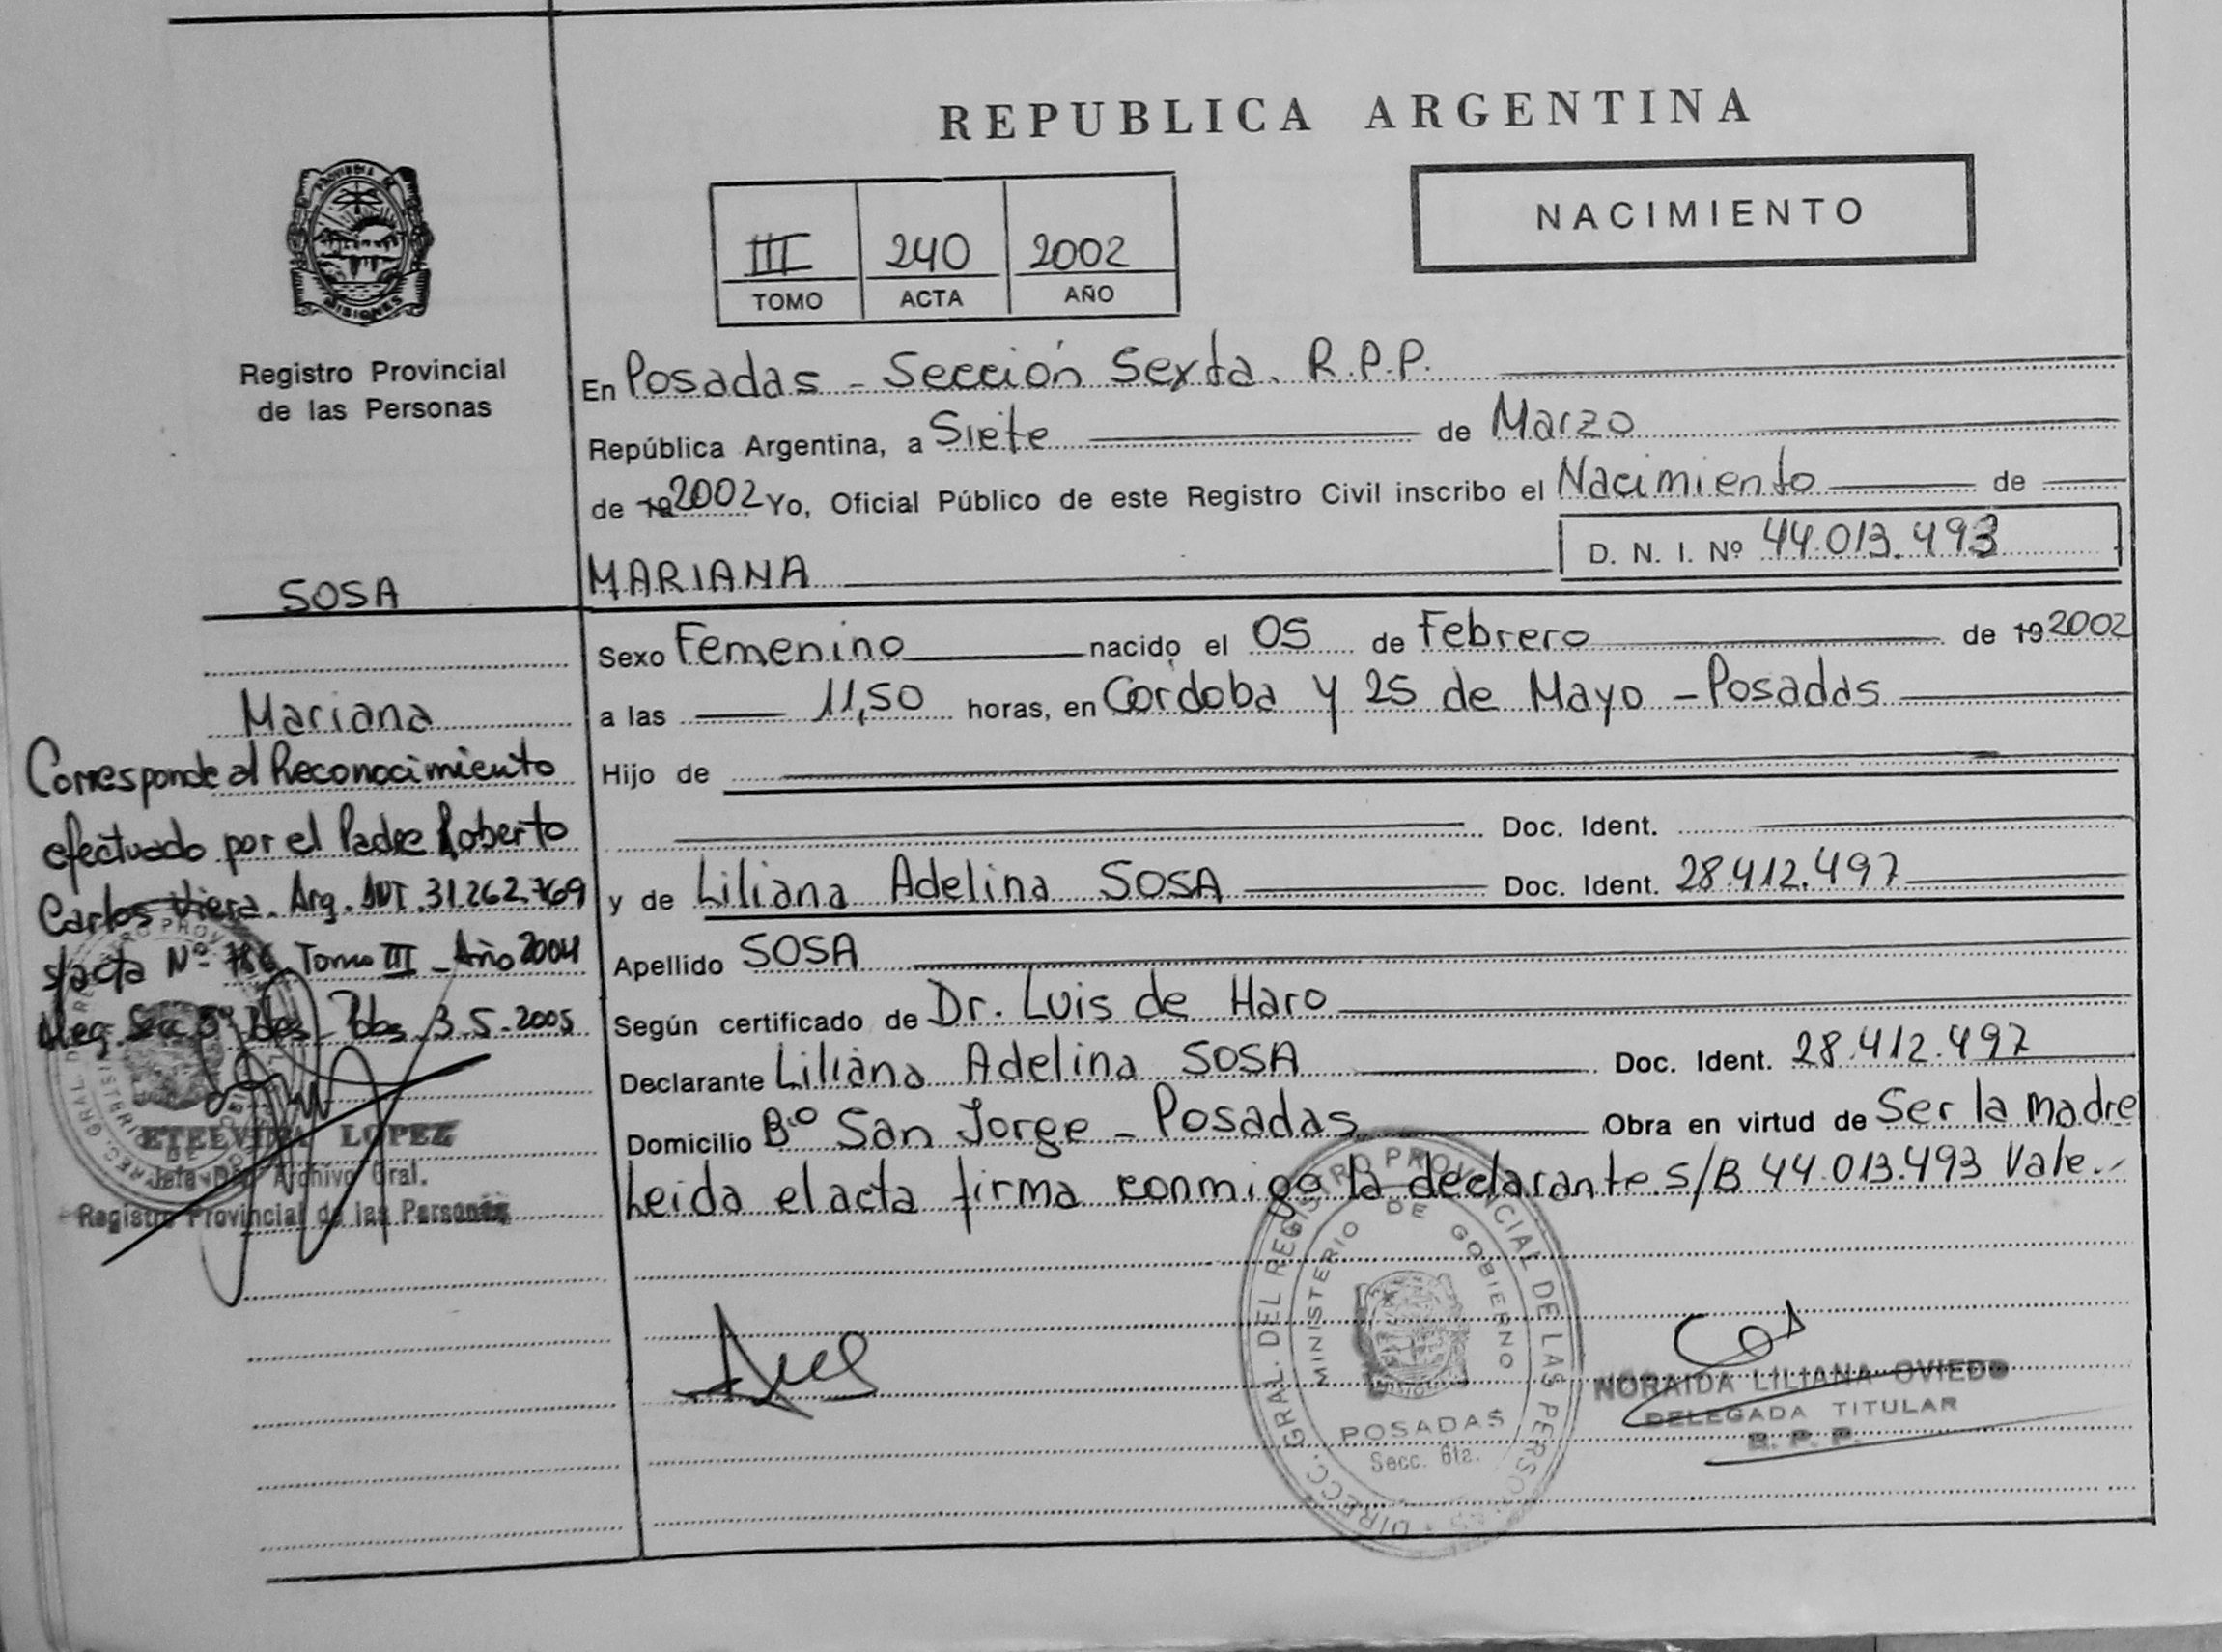 REPUBLICA ARGENTINA
NACIMIENTO
III 240 2002
TOMO ACTA AÑO
PROVINCIA DE MISIONES
Registro Provincial
de las Personas
En Posadas - Sección Sexta. R.P.P.
República Argentina, a Siete de Marzo
de 19 2002 Yo, Oficial Público de este Registro Civil inscribo el Nacimiento de
MARIANA D. N. I. Nº 44.013.493
SOSA
Mariana
Corresponde al Reconocimiento
efectuado por el Padre Roberto
Carlos Viera. Arg. DNI. 31.262.769
s/acta Nº 786 Tomo III - Año 2004
3.5.2005
ETELVINA LOPEZ
Jefe Dep. Archivo Gral.
Registro Provincial de las Personas
Sexo Femenino nacido el 05 de Febrero de 19 2002
a las 11,50 horas, en Córdoba y 25 de Mayo - Posadas
Hijo de
Doc. Ident.
y de Liliana Adelina SOSA Doc. Ident. 28.412.497
Apellido SOSA
Según certificado de Dr. Luis de Haro
Declarante Liliana Adelina SOSA Doc. Ident. 28.412.497
Domicilio Bº San Jorge - Posadas Obra en virtud de Ser la madre
Leida el acta firma conmigo la declarante. S/B 44.013.493 Vale.-
DIRECC. GRAL. DEL REGISTRO PROVINCIAL DE LAS PERSONAS
MINISTERIO DE GOBIERNO
POSADAS
Secc. 6ta.
NORAIDA LILIANA OVIEDO
DELEGADA TITULAR
R. P. P.